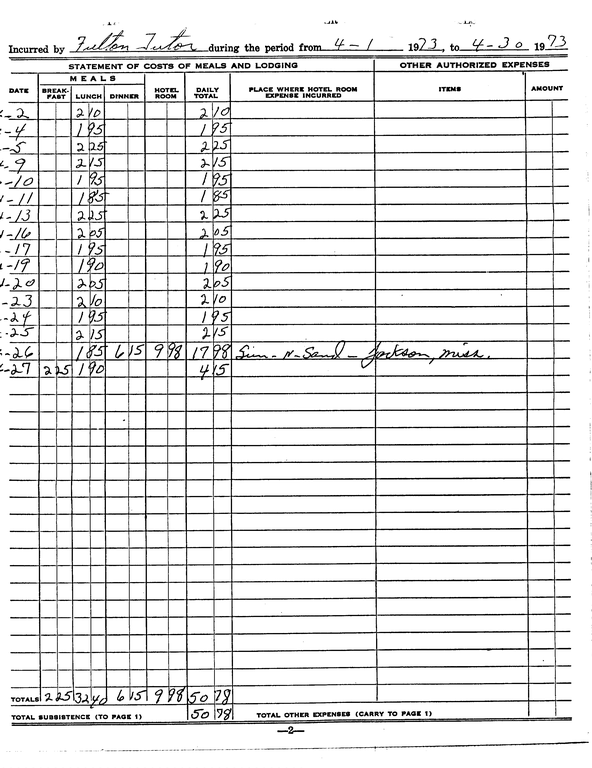 Incurred by Fulton Tutor during the period from 4-1 1973, to 4-30 1973
STATEMENT OF COSTS OF MEALS AND LODGING OTHER AUTHORIZED EXPENSES
MEALS
DATE BREAK-FAST LUNCH DINNER HOTEL ROOM DAILY TOTAL PLACE WHERE HOTEL ROOM EXPENSE INCURRED ITEMS AMOUNT
-2 2 10 2 10
-4 1 95 1 95
-5 2 25 2 25
-9 2 15 2 15
-10 1 95 1 95
-11 1 85 1 85
-13 2 25 2 25
-16 2 05 2 05
-17 1 95 1 95
-19 1 90 1 90
-20 2 05 2 05
-23 2 10 2 10
-24 1 95 1 95
-25 2 15 2 15
-26 1 85 6 15 9 98 17 98 Sun-N-Sand - Jackson, Miss.
-27 2 25 1 90 4 15
TOTALS 2 25 32 40 6 15 9 98 50 78
TOTAL SUBSISTENCE (TO PAGE 1) 50 78 TOTAL OTHER EXPENSES (CARRY TO PAGE 1)
—2—